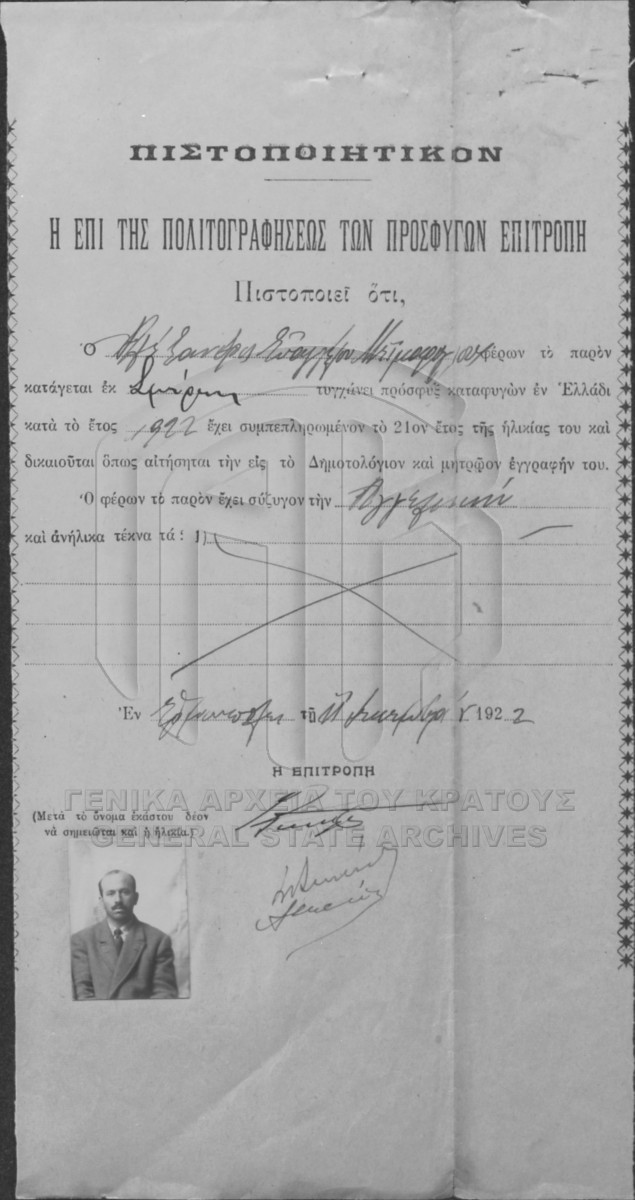 ΠΙΣΤΟΠΟΙΗΤΙΚΟΝ
Η ΕΠΙ ΤΗΣ ΠΟΛΙΤΟΓΡΑΦΗΣΕΩΣ ΤΩΝ ΠΡΟΣΦΥΓΩΝ ΕΠΙΤΡΟΠΗ
Πιστοποιεῖ ὅτι,
Ὁ Ἀλέξανδρος Εὐαγγέλου φέρων τὸ παρὸν
κατάγεται ἐκ Σμύρνης τυγχάνει πρόσφυξ καταφυγὼν ἐν Ἑλλάδι
κατὰ τὸ ἔτος 1922 ἔχει συμπεπληρωμένον τὸ 21ον ἔτος τῆς ἡλικίας του καὶ
δικαιοῦται ὅπως αἰτήσηται τὴν εἰς τὸ Δημοτολόγιον καὶ μητρῷον ἐγγραφήν του.
Ὁ φέρων τὸ παρὸν ἔχει σύζυγον τὴν Ἀγγελικὴν
καὶ ἀνήλικα τέκνα τά: 1)
Ἐν Ἑρμουπόλει τῇ 192 2
Η ΕΠΙΤΡΟΠΗ
ΓΕΝΙΚΑ ΑΡΧΕΙΑ ΤΟΥ ΚΡΑΤΟΥΣ
(Μετὰ τὸ ὄνομα ἑκάστου δέον
νὰ σημειῶται καὶ ἡ ἡλικία.)
GENERAL STATE ARCHIVES